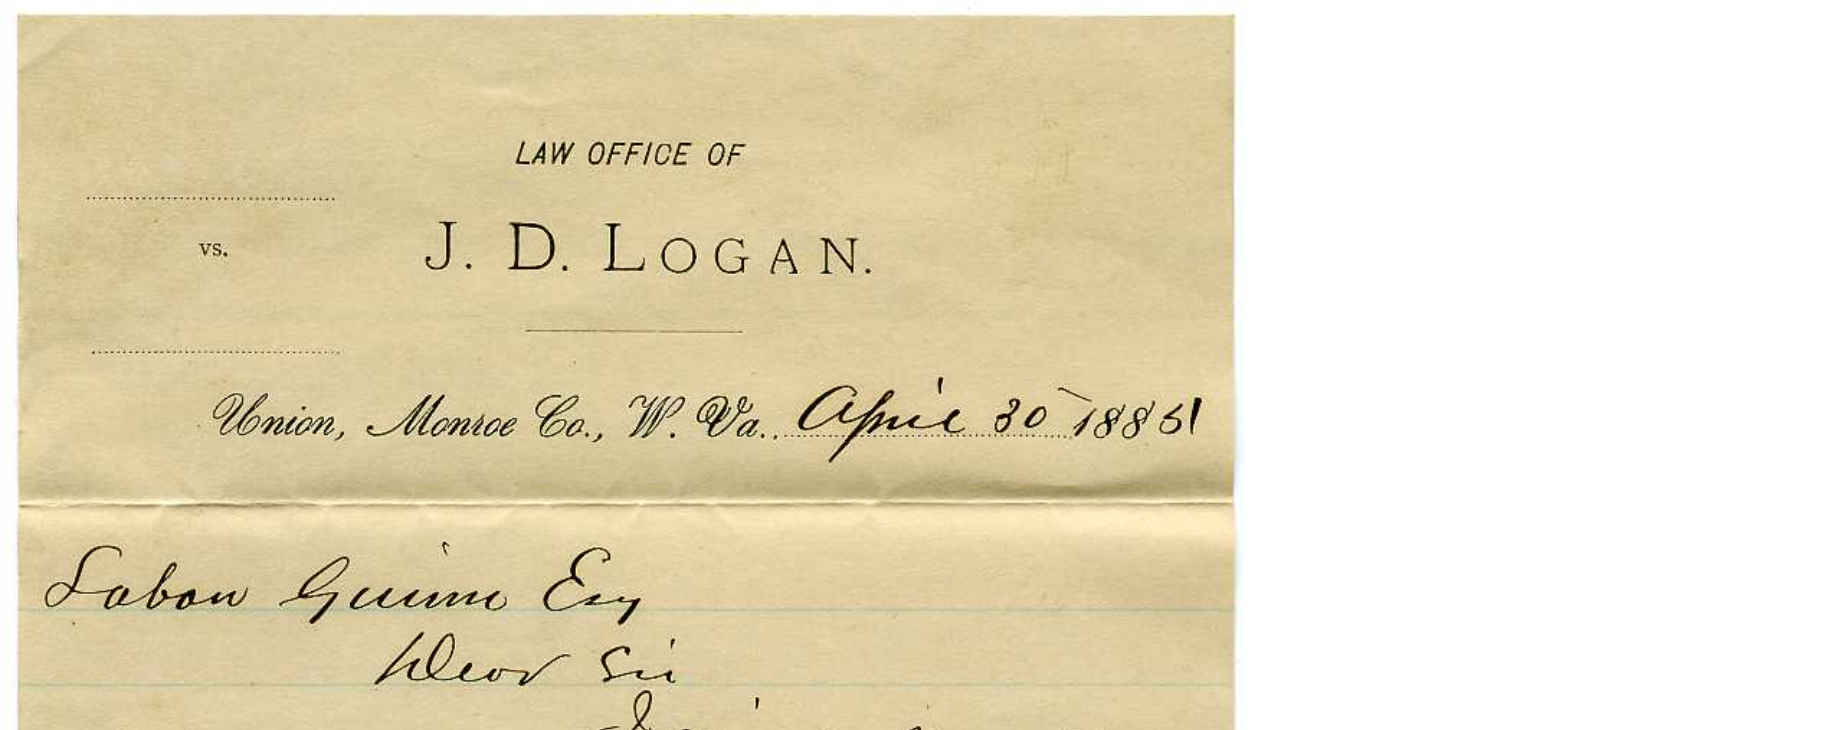 LAW OFFICE OF
vs.
J. D. LOGAN.
Union, Monroe Co., W. Va. April 30 188
Laban Guinn Esq
Dear Sir